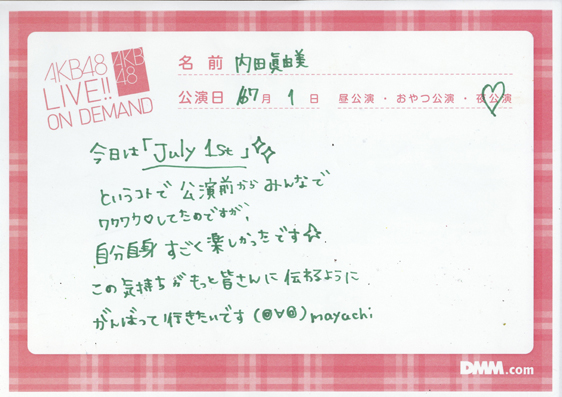 AKB48
LIVE!!
ON DEMAND
AKB
48
名 前 内田眞由美
公演日 7月 1 日 昼公演・おやつ公演・夜公演
今日は「July 1st」
というコトで 公演前から みんなで
ワクワク♡してたのですが、
自分自身 すごく楽しかったです☆
この気持ちが もっと皆さんに 伝わるように
がんばって行きたいです (@∀@) mayuchi
DMM.com